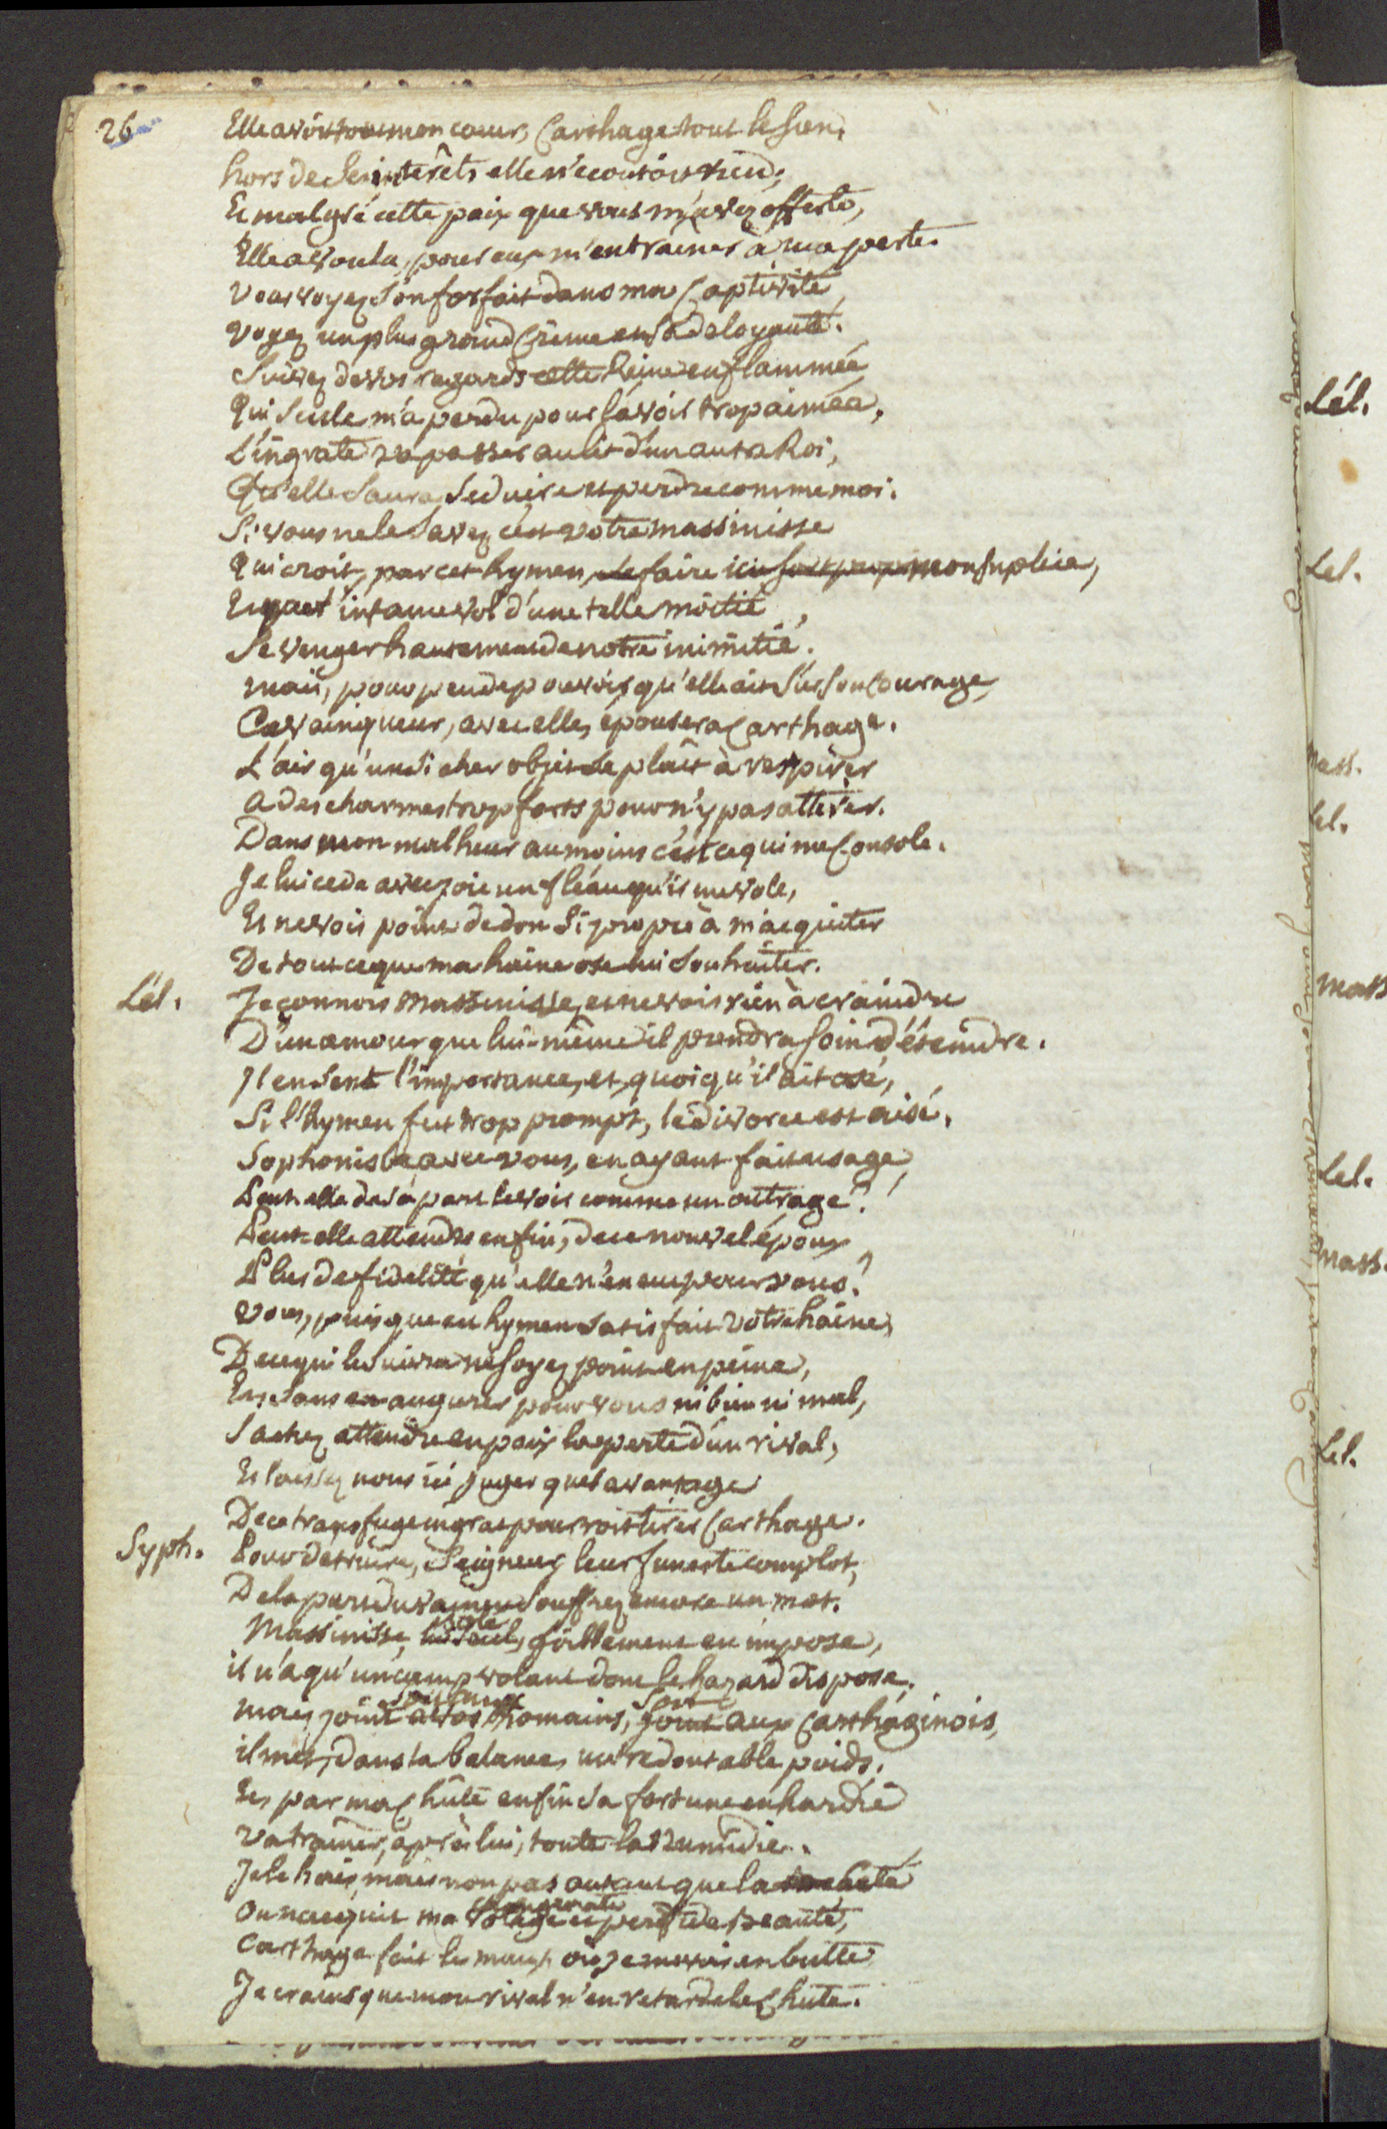 26
Elle avoit tout mon cœur, Carthage tout le sien;
hors de ses intérêts elle n'ecoutoit rien;
Et malgré cette paix que vous m'avez offerte,
Elle a voulu, pour eux m'entrainer à ma perte.
Vous voyez son forfait dans ma Captivité,
Voyez un plus grand Crime en sa deloyauté.
Suivez de vos regards cette Reine enflammée
Qui seule m'a perdu pour l'avoir trop aimée,
L'ingrate va passer au lit d'un autre Roi,
Qu'elle saura seduire et perdre comme moi.
Si vous ne le savez c'est votre massinisse
Qui croit, par cet hymen, se faire ici mon suplice,
Et par l'infame vol d'une telle moitié,
Se venger hautement de notre inimitié.
mais, pour peu de pouvoir qu'elle ait sur son courage,
Ce vainqueur, avec elle, épousera Carthage.
L'air qu'un si cher objet se plaît à respirer
A des charmes trop forts pour n'y pas attirer.
Dans mon malheur au moins c'est ce qui me Console.
Je lui cede avec joie un fléau qu'il me vole,
Et ne vois point de don si propre à m'acquiter
De tout ce que ma haine ose lui souhaiter.
Lél. Je connois Massinisse, et ne vois rien à craindre
D'un amour que lui-même il prendra soin d'éteindre.
Il en sent l'importance, et, quoi qu'il ait osé,
Si l'hymen fut trop prompt, le divorce est aisé.
Sophonisbe avec vous, en ayant fait usage,
Peut-elle de sa part le voir comme un outrage?
Peut-elle attendre enfin, de ce nouvel époux
Plus de fidelité qu'elle n'en eut pour vous?
Vous, puisque cet hymen satisfait votre haine,
De ce qui le suivra ne soyez point en peine,
Et, sans en augurer pour vous ni bien ni mal,
Sachez attendre en paix la perte d'un rival,
Et laissez nous ici juger quel avantage
De ce transfuge ingrat pourroit tirer Carthage.
Syph. Pour détruire, Seigneur, leur funeste complot,
De la part du vaincu souffrez encore un mot.
isolé
Massinisse, lui seul, foiblement en impose,
il n'a qu'un camp volant dont le hazard dispose.
Soit aux Soit
mais joint à vos Romains, joint aux Carthaginois,
il met, dans la balance, un redoutable poids.
Et par ma Chûte enfin sa fortune enhardie
Va trainer, après lui, toute la Numidie.
Je le hais, mais non pas autant que la
Ou nacquit ma volage et perfide beauté,
Carthage fait les maux où je me vois en butte
Je crains que mon rival n'en retarde la Chute.
Lél.
Lel.
Mass.
Lel.
Mass
Lel.
Mass.
Lel.